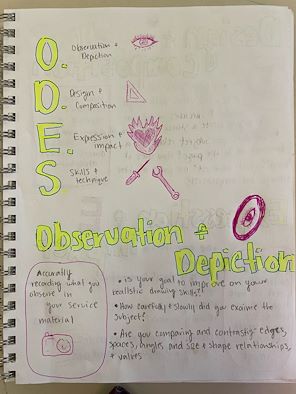 O.
Observation +
Depiction
D.
Design +
Composition
E.
Expression +
impact
S
Skills +
technique
Observation +
Depiction
Accurately
recording what you
observe in
your service
material
• Is your goal to improve on your
realistic drawing skills?
• How carefully + slowly did you examine the
subject?
• Are you comparing and contrasting edges,
spaces, angle, and size + shape relationships,
+ values